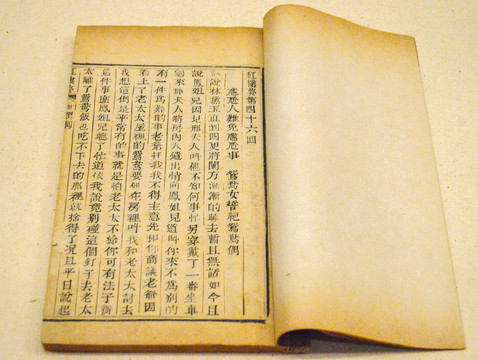 紅樓夢第四十六回
尷尬人難免尷尬事 鴛鴦女誓絕鴛鴦偶
話說林黛玉直到四更將闌方漸漸的睡去暫且無話如今且
說鳳姐兒因見邢夫人叫他不知何事忙另穿戴了一番坐車
過來邢夫人將房內人遣出悄向鳳姐兒道叫你來不為別的
有一件為難的事老爺托我我不得主意先和你商議老爺因
看上了老太太屋裡的鴛鴦要他在房裡叫我和老太太討去
我想這倒是平常有的事就是怕老太太不給你可有法子辦
這件事麼鳳姐兒聽了忙道依我說竟別碰這個釘子去老太
太離了鴛鴦飯也吃不下去的那裡就捨得了況且平日說起
紅樓夢